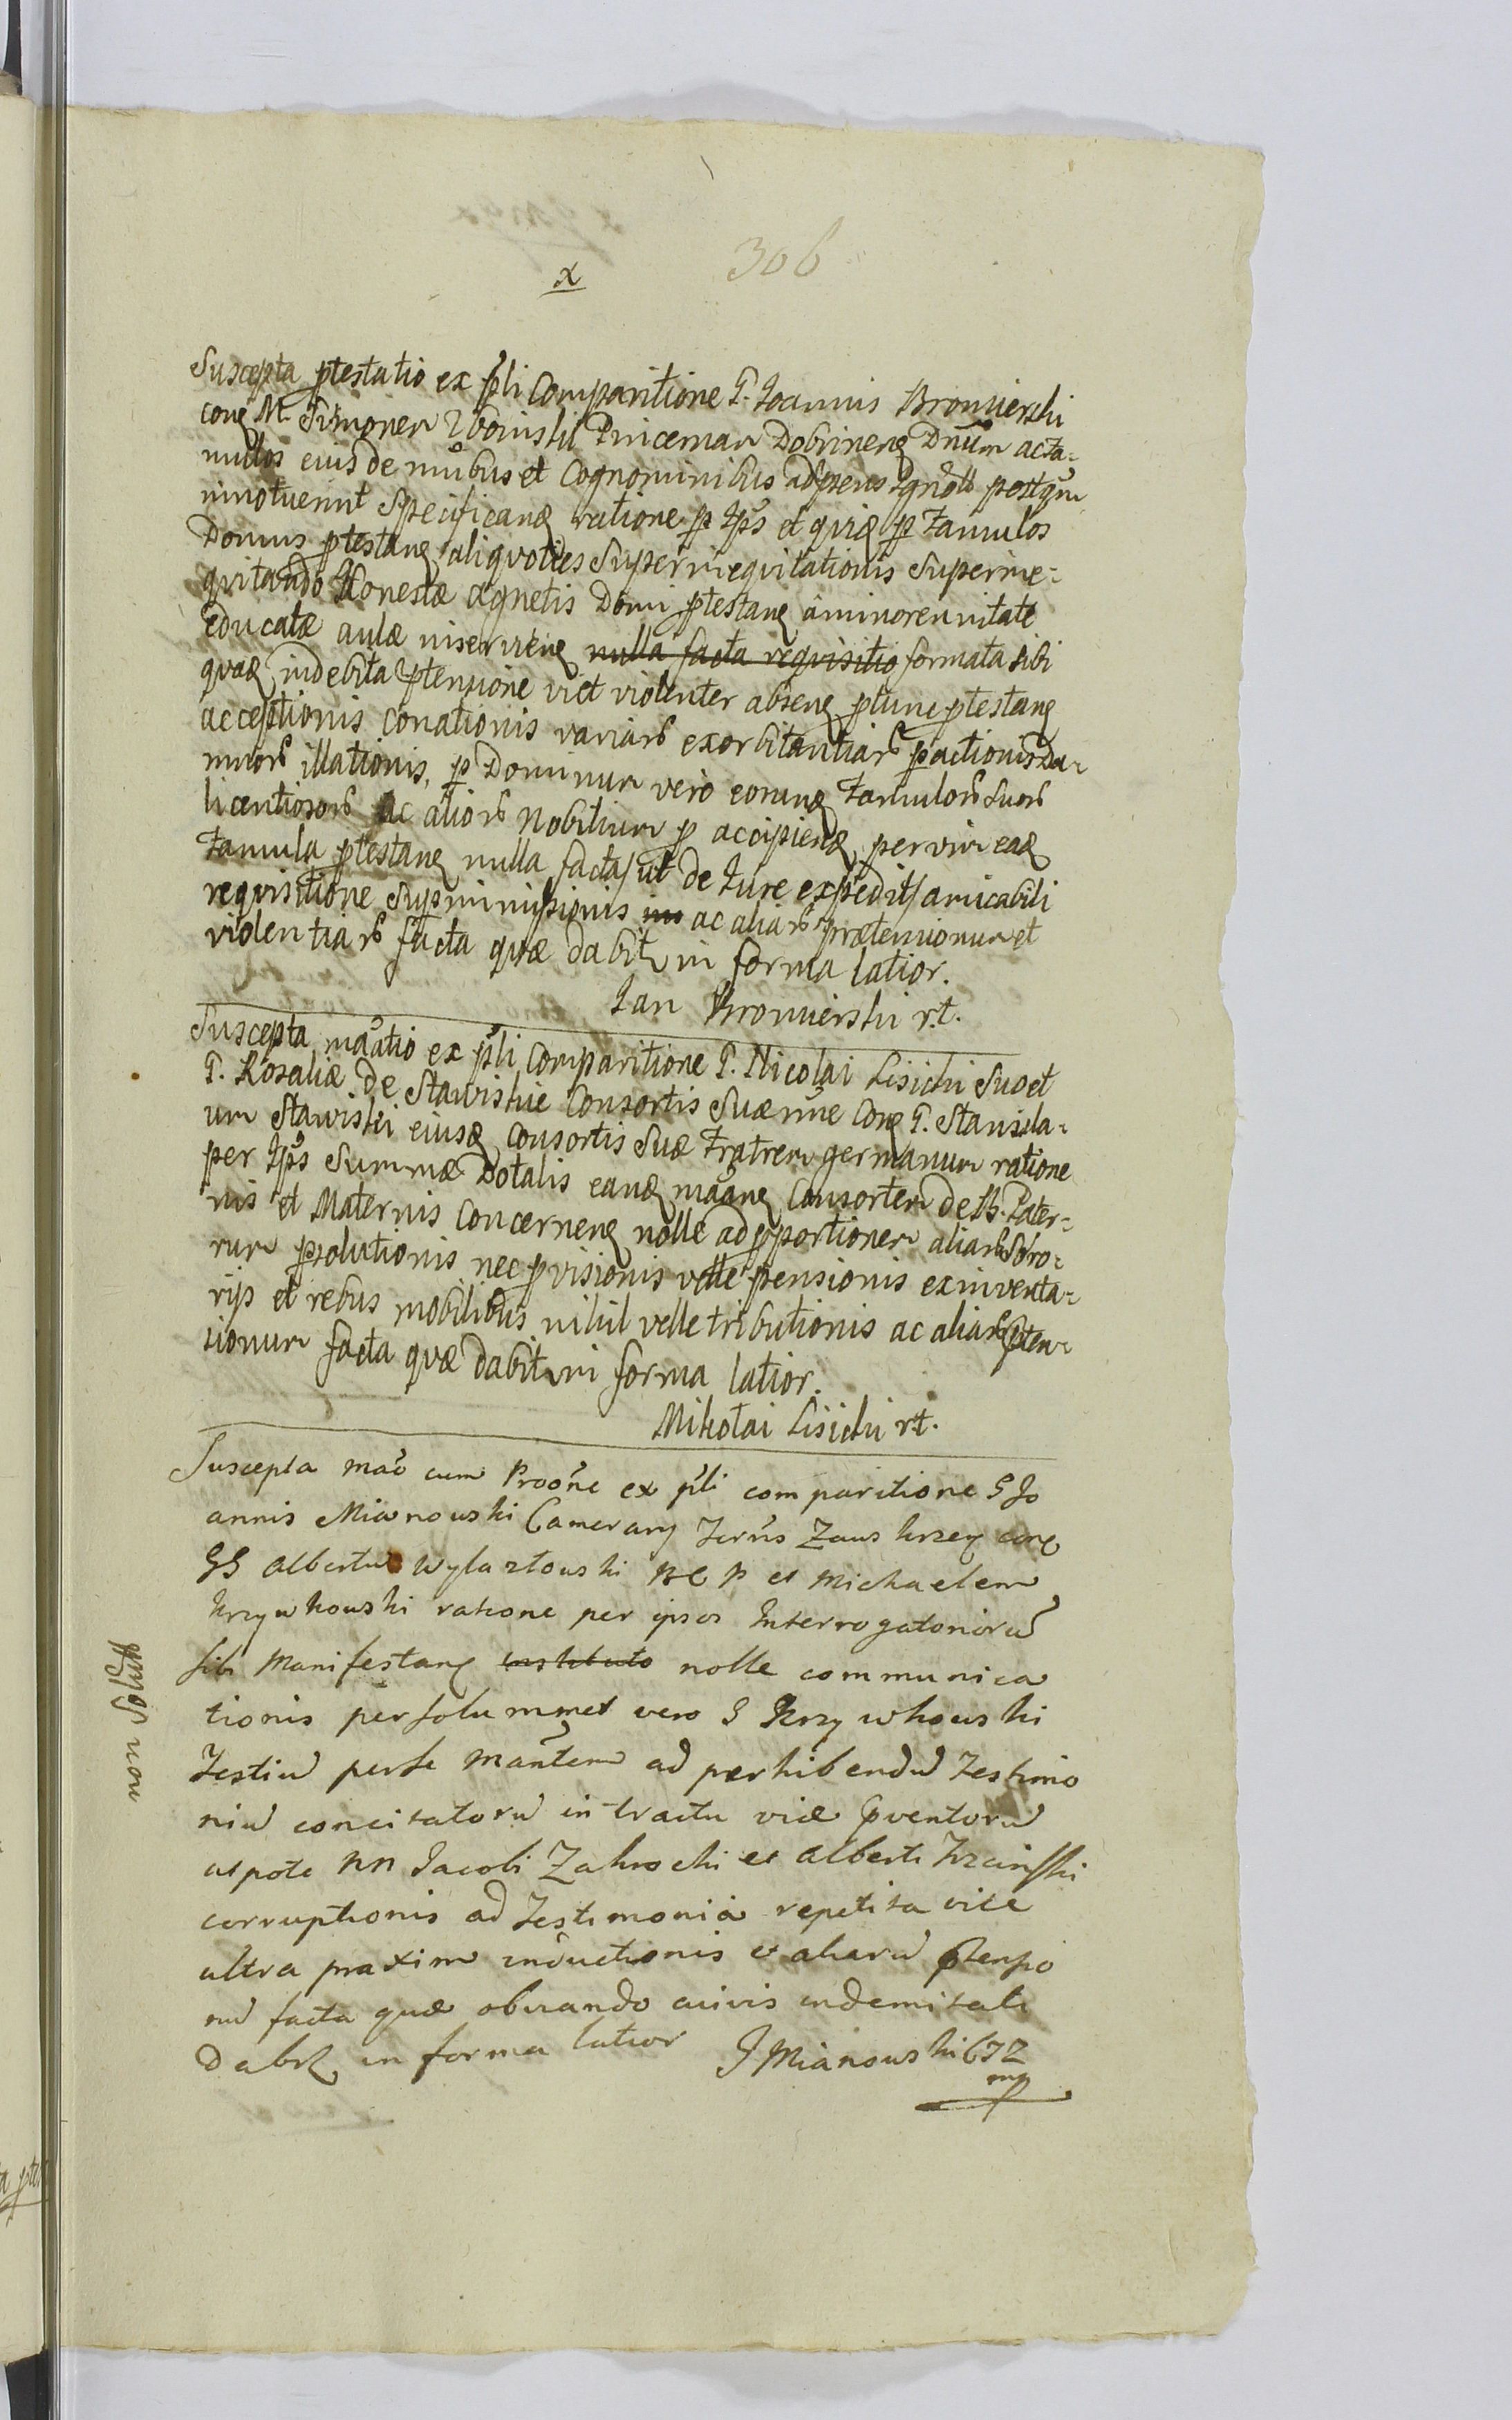 306
x
Suscepta ptestatio ex pli Comparitione G. Joannis Bromierski
conq M. Simonem Zboinski Pincernam Dobrinenq Dnum ac fa-
mulos eius de nnibus et Cognominibus ad psens Ignotos postqum
innotuerint Specificanq ratione p Ipsos et quiq p Famulos
Domus ptestanq aliquoties Superinequitationis Superine-
quitando Honestæ Agnetis Domi ptestanq à minorennitate
educatæ aulæ inservienq nulla facta requisitio formata sibi
quaq indebita ptensione vi et violenter absenq ptunc ptestanq
acceptionis Conationis variars exorbitantiars pactionis Da-
mnors illationis, p Dominum vero eorunq Famulors suors
licentiosors ac aliors Nobilium p accipienq per vim eaq
Famula ptestanq nulla facta /ut de Iure expedit/ amicabili
requisitione Supimmissionis ac aliars prætensionum et
violentiars facta quæ dabit in forma latior.
Jan Bromierski r.t.
Suscepta maatio ex pli Comparitione G. Nicolai Lisicki Suo et
G. Rosaliæ de Stawiskie Consortis Suæ nne Conq G. Stanisla-
um Stawiski eiusq Consortis Suæ Fratrem germanum ratione
per Ipsos Summæ Dotalis eanq maanq Consortem de B. Pater-
nis et Maternis Concernenq nolle ad pportionem aliars Soro-
rum psolutionis nec pvisionis velle pensionis ex inventa-
rijs et rebus mobilibus nihil velle tributionis ac aliars pten-
sionum facta quæ dabit in forma latior.
Mikołai Lisicki r.t.
Suscepta mao cum Proone ex pli comparitione G Jo
annis Mianowski Camerarij Terris Zawskrzenq conq
GG Albertum Wylazłowski B C P et Michaelem
Krzywkowski ratione per ipsos Interrogatoriorum
sibi Manifestanq instituto nolle communica
tionis per solummet vero G Krzywkowski
Testium per se Mantem ad perhibendum Testimo
nium concitatorum in tractu viæ pventorum
utpote NN Jacobi Zakrocki et Alberti
corruptionis ad Testimonia repetita vice
ultra praxim inductionis et aliarum ptensio
num facta quæ obviando cuivis indemitati
Dabit in forma latior J Mianowski C T Z
mp
non